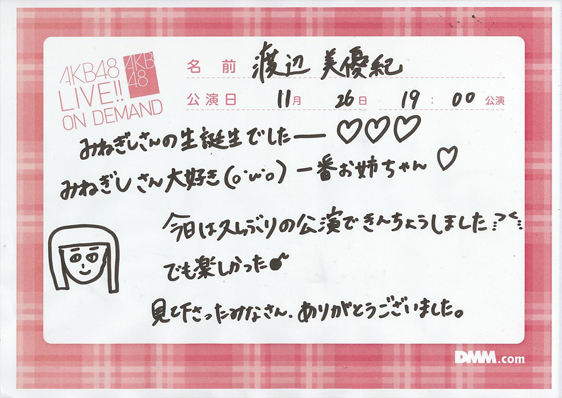 AKB48
LIVE!!
ON DEMAND
AKB
48
名前 渡辺 美優紀
公演日 11月 26日 19:00 公演
みねぎしさんの生誕生でしたー♡♡♡
みねぎしさん大好き(o・ω・o)一番お姉ちゃん♡
今日は久しぶりの公演できんちょうしました><
でも楽しかった
見て下さったみなさん、ありがとうございました。
DMM.com